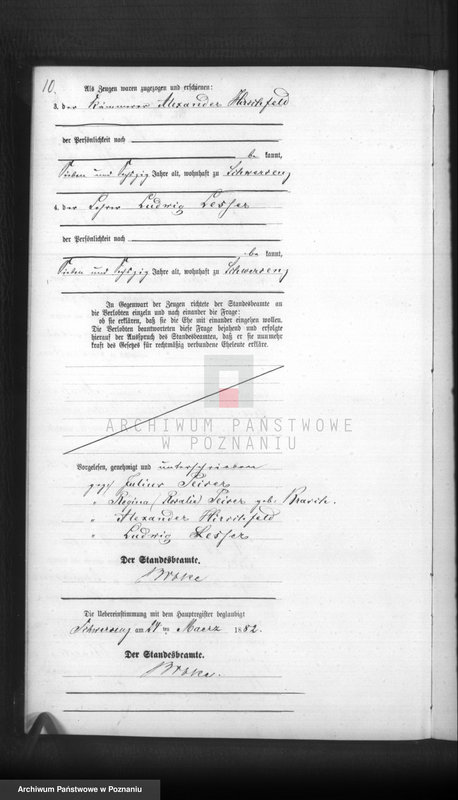 10.
Als Zeugen waren zugezogen und erschienen:
3. der Kämmerer Alexander Hirschfeld
der Persönlichkeit nach
be kannt,
Sieben und Sechzig Jahre alt, wohnhaft zu Schwersenz
4. der Lehrer Ludwig Lesser
der Persönlichkeit nach
be kannt,
Sieben und Sechzig Jahre alt, wohnhaft zu Schwersenz
In Gegenwart der Zeugen richtete der Standesbeamte an
die Verlobten einzeln und nach einander die Frage:
ob sie erklären, daß sie die Ehe mit einander eingehen wollen.
Die Verlobten beantworteten diese Frage bejahend und erfolgte
hierauf der Ausspruch des Standesbeamten, daß er sie nunmehr
kraft des Gesetzes für rechtmäßig verbundene Eheleute erkläre.
ARCHIWUM PAŃSTWOWE
W POZNANIU
Vorgelesen, genehmigt und unterschrieben
gez. Julius
" Regina (Rosalie) geb.
" Alexander Hirschfeld
" Ludwig Lesser
Der Standesbeamte.
Die Uebereinstimmung mit dem Hauptregister beglaubigt
Schwersenz am 24 ten Maerz 1882.
Der Standesbeamte.
Archiwum Państwowe w Poznaniu